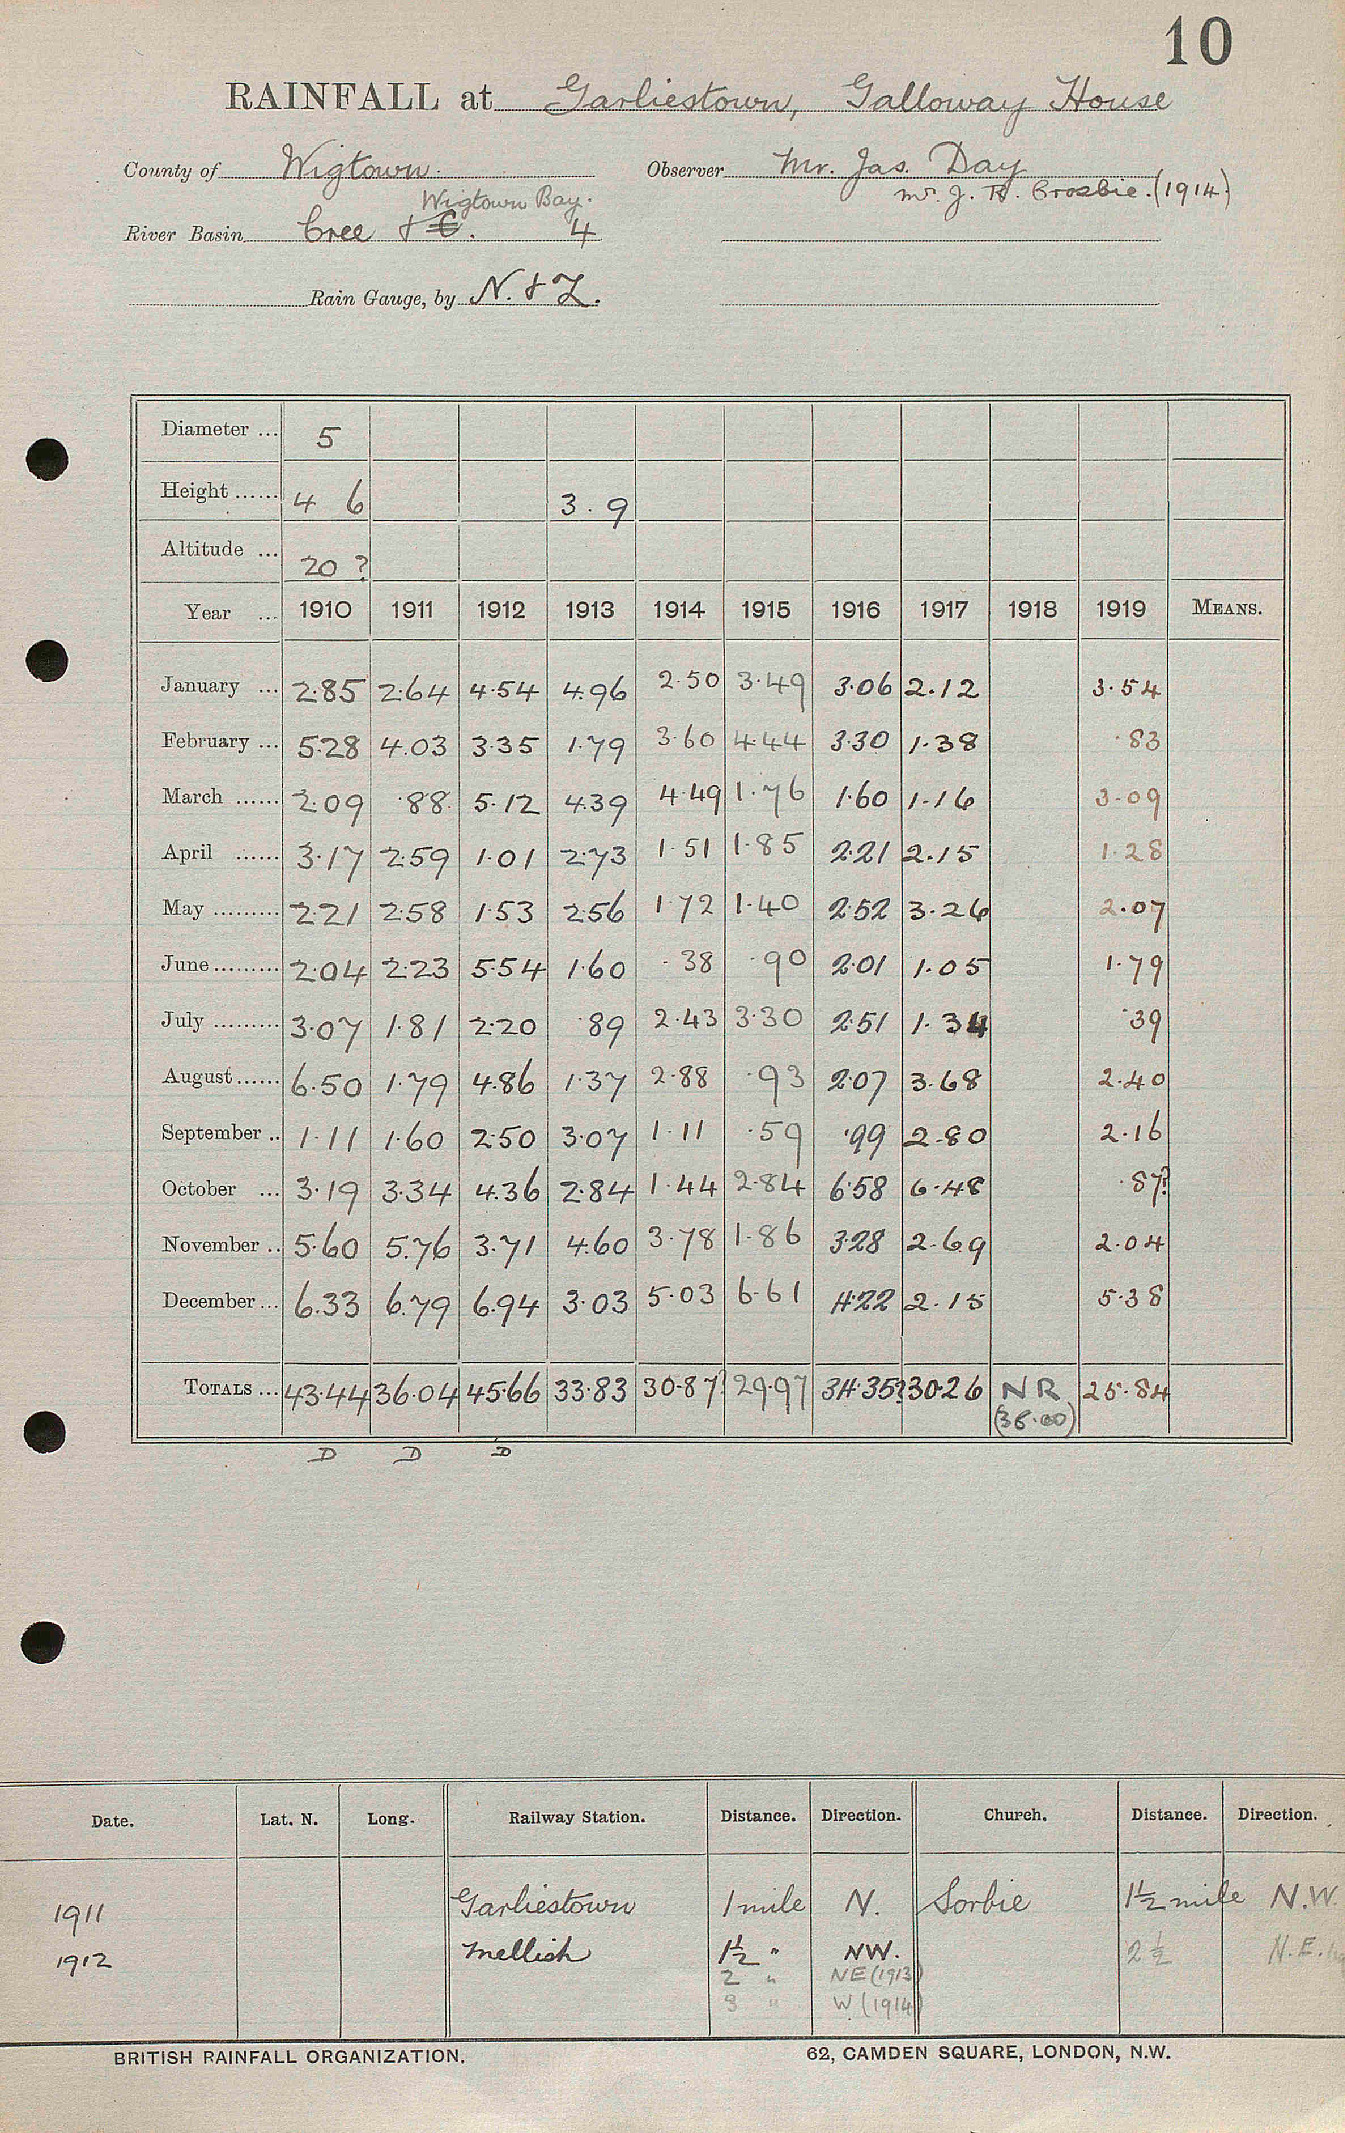 10
RAINFALL at Garliestown, Galloway House
County of Wigtown. Observer Mr. Jas. Day
Wigtown Bay. Mr. J. H. Crosbie. (1914)
River Basin Cree & C. 4
Rain Gauge, by N. & Z.
Diameter ... 5
Height ...... 4 6 3. 9
Altitude ... 20 ?
Year ... 1910 1911 1912 1913 1914 1915 1916 1917 1918 1919 MEANS.
January ... 2.85 2.64 4.54 4.96 2.50 3.49 3.06 2.12 3.54
February ... 5.28 4.03 3.35 1.79 3.60 4.44 3.30 1.38 .83
March ...... 2.09 .88 5.12 4.39 4.49 1.76 1.60 1.16 3.09
April ...... 3.17 2.59 1.01 2.73 1.51 1.85 2.21 2.15 1.28
May ......... 2.21 2.58 1.53 2.56 1.72 1.40 2.52 3.26 2.07
June ......... 2.04 2.23 5.54 1.60 .38 .90 2.01 1.05 1.79
July ......... 3.07 1.81 2.20 .89 2.43 3.30 2.51 1.34 .39
August ...... 6.50 1.79 4.86 1.37 2.88 .93 2.07 3.68 2.40
September .. 1.11 1.60 2.50 3.07 1.11 .59 .99 2.80 2.16
October ... 3.19 3.34 4.36 2.84 1.44 2.84 6.58 6.48 .87?
November .. 5.60 5.76 3.71 4.60 3.78 1.86 3.28 2.69 2.04
December ... 6.33 6.79 6.94 3.03 5.03 6.61 4.22 2.15 5.38
TOTALS ... 43.44 36.04 45.66 33.83 30.87? 29.97 34.35? 30.26 NR 25.84
(36.00)
D D D
Date. Lat. N. Long. Railway Station. Distance. Direction. Church. Distance. Direction.
1911 Garliestown 1 mile N. Sorbie 1½ mile N.W.
1912 Mellish 1½ " NW. 2½ N.E.
2 " NE (1913)
8 " W. (1914)
BRITISH RAINFALL ORGANIZATION. 62, CAMDEN SQUARE, LONDON, N.W.